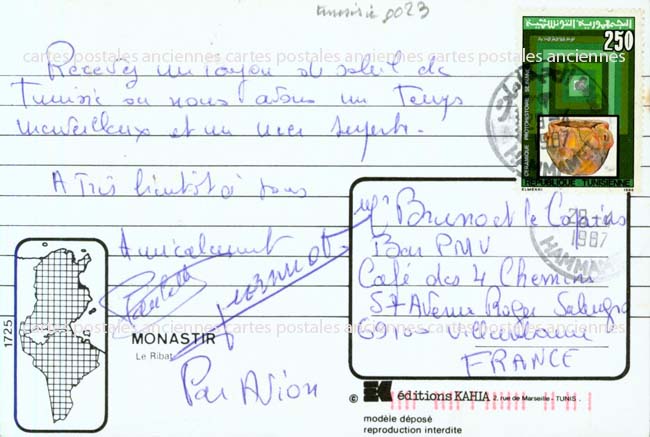 tunisie 0023
Recevez un rayon de soleil de
Tunisie où nous avons un temps
merveilleux et un mer superbe.
A Très bientôt à tous
Amicalement
Paulette
cartes postales anciennes cartes postales anciennes cartes postales anciennes
MONASTIR
Le Ribat
Par Avion
1725
الجمهورية التونسية
250
CERAMIQUE PROTOHISTOIRE SEJNANE
REPUBLIQUE TUNISIENNE
1987
HAMMAM
1987
HAMMAM
Bruno et le Copains
Bar PMU
Café des 4 Chemins
57 Avenue Roger Salengro
69100 Villeurbanne
FRANCE
© éditions KAHIA 2, rue de Marseille - TUNIS.
modèle déposé
reproduction interdite